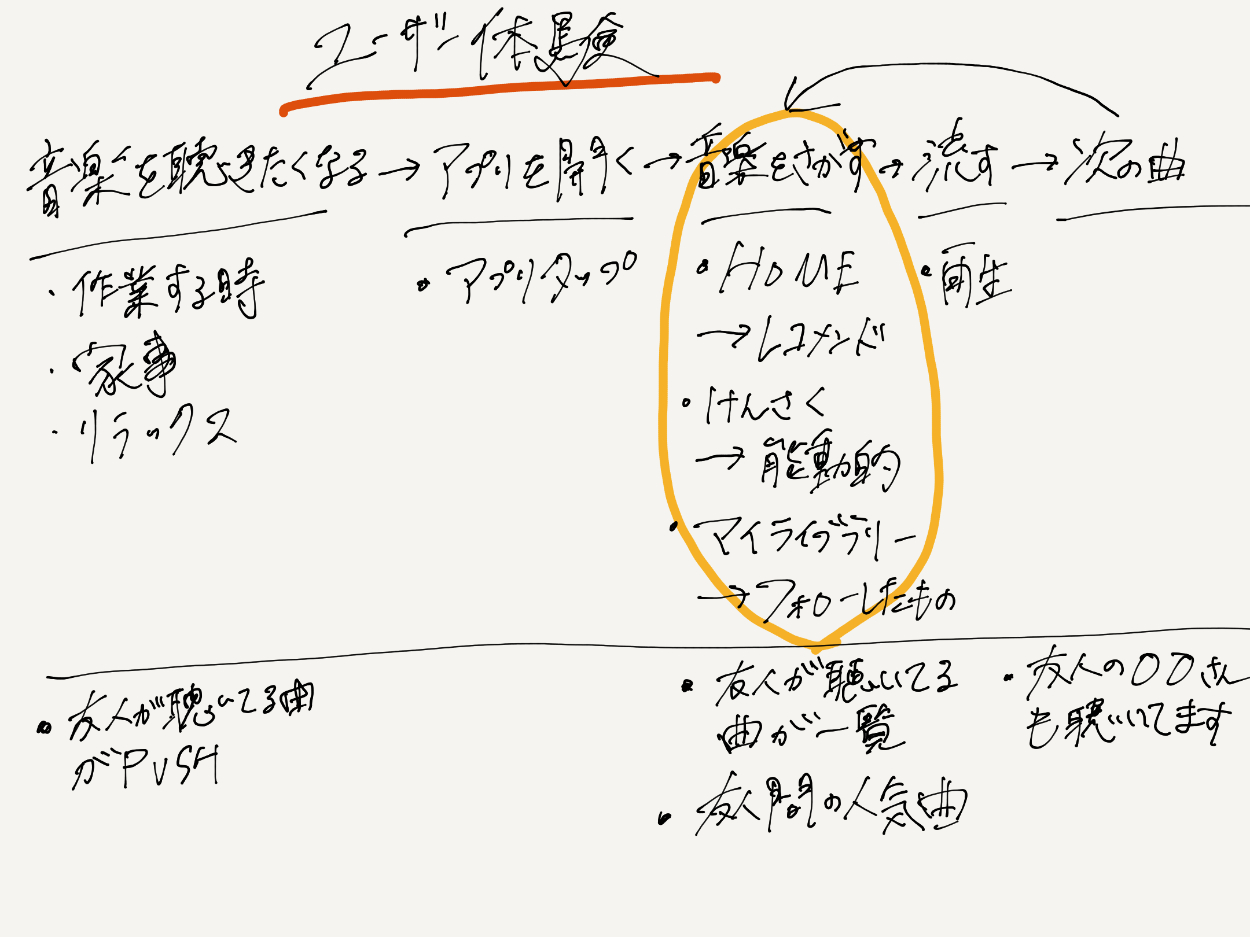 ユーザー体験
音楽を聴きたくなる→アプリを開く→音楽をさがす→流す→次の曲
・作業する時
・家事
・リラックス
・アプリタップ
・HOME
→レコメンド
・けんさく
→能動的
・マイライブラリー
→フォローしたもの
・再生
・友人が聴いてる曲
がPUSH
・友人が聴いてる
曲が一覧
・友人間の人気曲
・友人の〇〇さん
も聴いてます